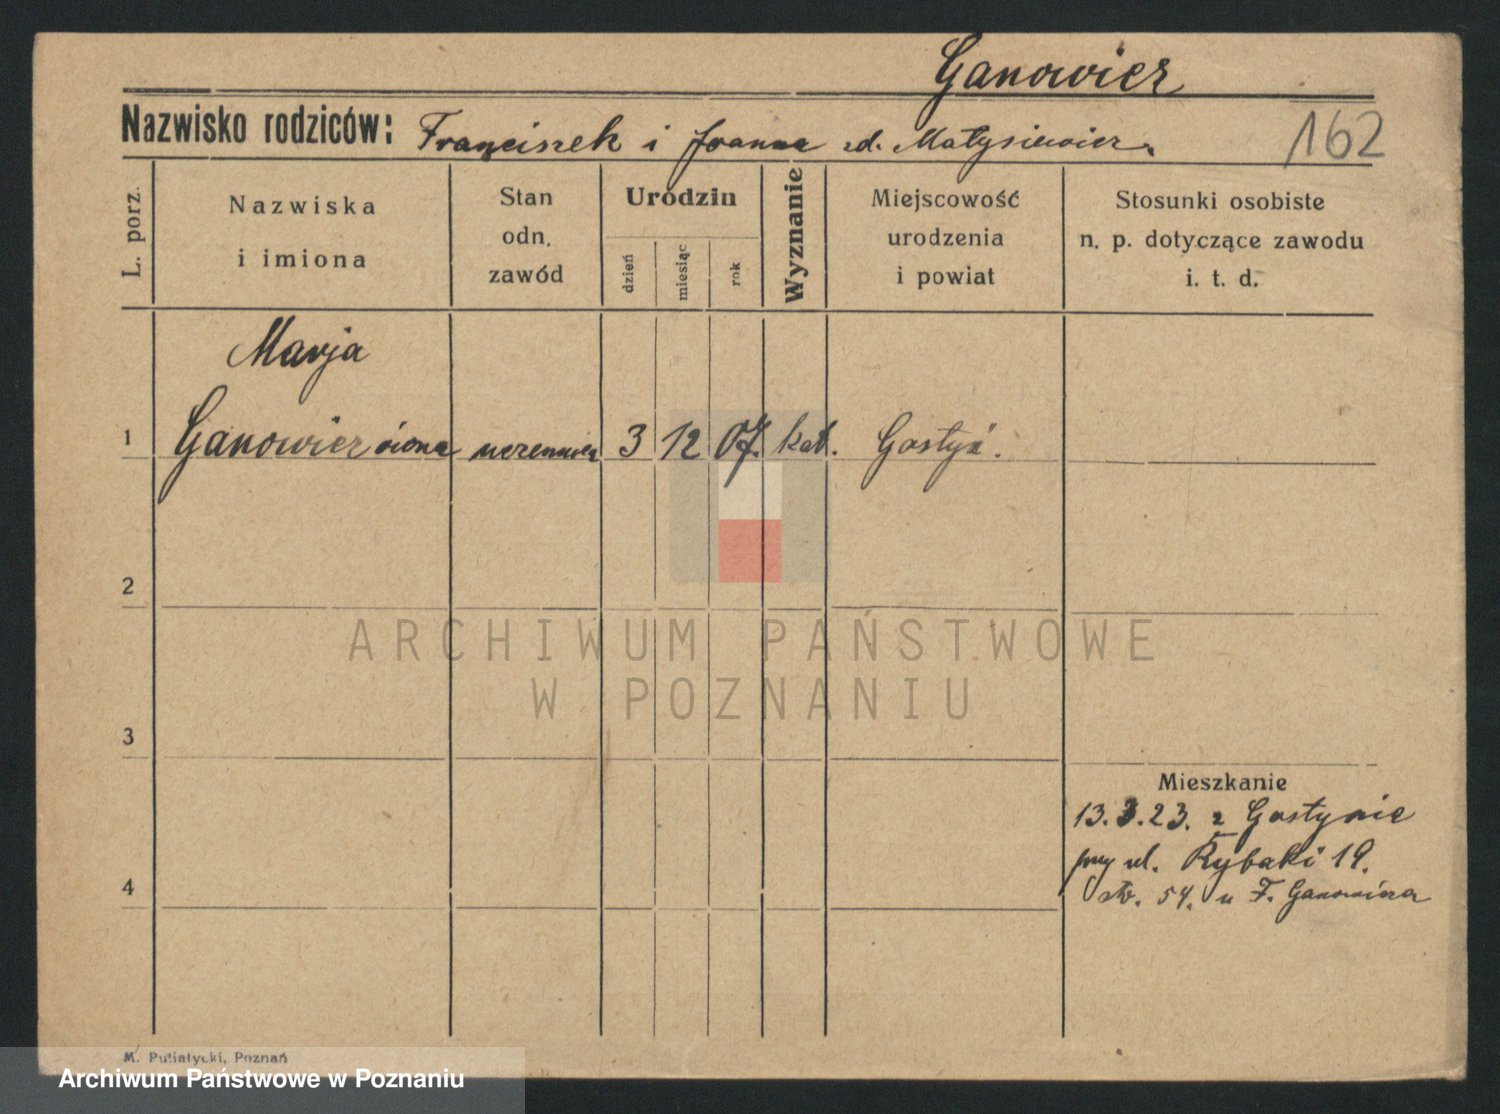 Ganowicz
Nazwisko rodziców: Franciszek i Joanna zd. Matysiewicz.
162
L. porz.
Nazwiska
i imiona
Stan
odn.
zawód
Urodzin
dzień
miesiąc
rok
Wyznanie
Miejscowość
urodzenia
i powiat
Stosunki osobiste
n. p. dotyczące zawodu
i. t. d.
Marja
1 Ganowiczówna uczennica 3 12 07. kat. Gostyń.
2
ARCHIWUM PAŃSTWOWE
W POZNANIU
3
Mieszkanie
13.3.23. z Gostynia
przy ul. Rybaki 19.
str. 54. u F. Ganowicza
4
M. Putiatycki, Poznań
Archiwum Państwowe w Poznaniu